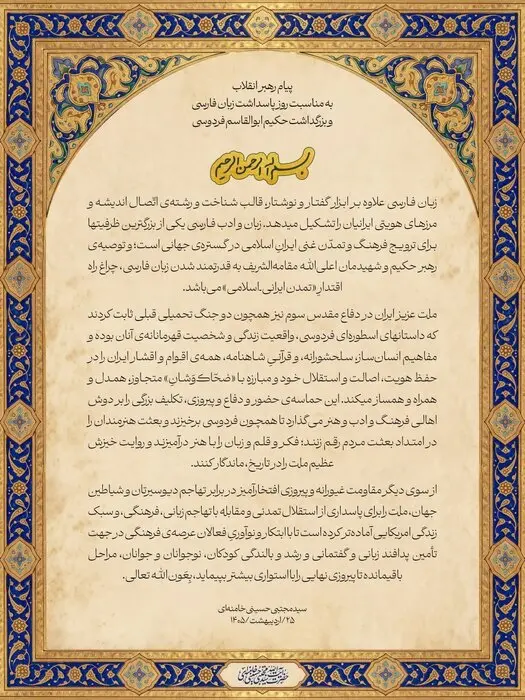 پیام رهبر انقلاب
به مناسبت روز پاسداشت زبان فارسی
و بزرگداشت حکیم ابوالقاسم فردوسی
بسم الله الرحمن الرحیم
زبان فارسی علاوه بر ابزار گفتار و نوشتار، قالب شناخت و رشته‌ی اتّصال اندیشه و
مرزهای هویتی ایرانیان را تشکیل میدهد. زبان و ادب فارسی یکی از بزرگترین ظرفیتها
برای ترویج فرهنگ و تمدّن غنی ایرانِ اسلامی در گستره‌ی جهانی است؛ و توصیه‌ی
رهبر حکیم و شهیدمان اعلی‌الله مقامه‌الشریف به قدرتمند شدن زبان فارسی، چراغ راه
اقتدارِ «تمدن ایرانی_اسلامی» می‌باشد.
ملت عزیز ایران در دفاع مقدس سوم نیز همچون دو جنگ تحمیلی قبلی ثابت کردند
که داستانهای اسطوره‌ای فردوسی، واقعیت زندگی و شخصیت قهرمانانه‌ی آنان بوده و
مفاهیم انسان‌ساز، سلحشورانه، و قرآنیِ شاهنامه، همه‌ی اقوام و اقشار ایران را در
حفظ هویت، اصالت و استقلال خود و مبارزه با «ضحّاک‌وَشانِ» متجاوز، همدل و
همراه و همساز میکند. این حماسه‌ی حضور و دفاع و پیروزی، تکلیف بزرگی را بر دوش
اهالی فرهنگ و ادب و هنر می‌گذارد تا همچون فردوسی برخیزند و بعثت هنرمندان را
در امتداد بعثت مردم رقم زنند؛ فکر و قلم و زبان را با هنر درآمیزند و روایت خیزش
عظیم ملت را در تاریخ، ماندگار کنند.
از سوی دیگر مقاومت غیورانه و پیروزی افتخارآمیز در برابر تهاجم دیوسیرتان و شیاطین
جهان، ملت را برای پاسداری از استقلال تمدنی و مقابله با تهاجم زبانی، فرهنگی، و سبک
زندگی امریکایی آماده‌تر کرده است تا با ابتکار و نوآوریِ فعالان عرصه‌ی فرهنگی در جهت
تأمین پدافند زبانی و گفتمانی و رشد و بالندگی کودکان، نوجوانان و جوانان، مراحل
باقیمانده تا پیروزی نهایی را با استواری بیشتر بپیماید، بِعَون الله تعالی.
سیدمجتبی حسینی خامنه‌ای
۲۵/اردیبهشت/۱۴۰۵